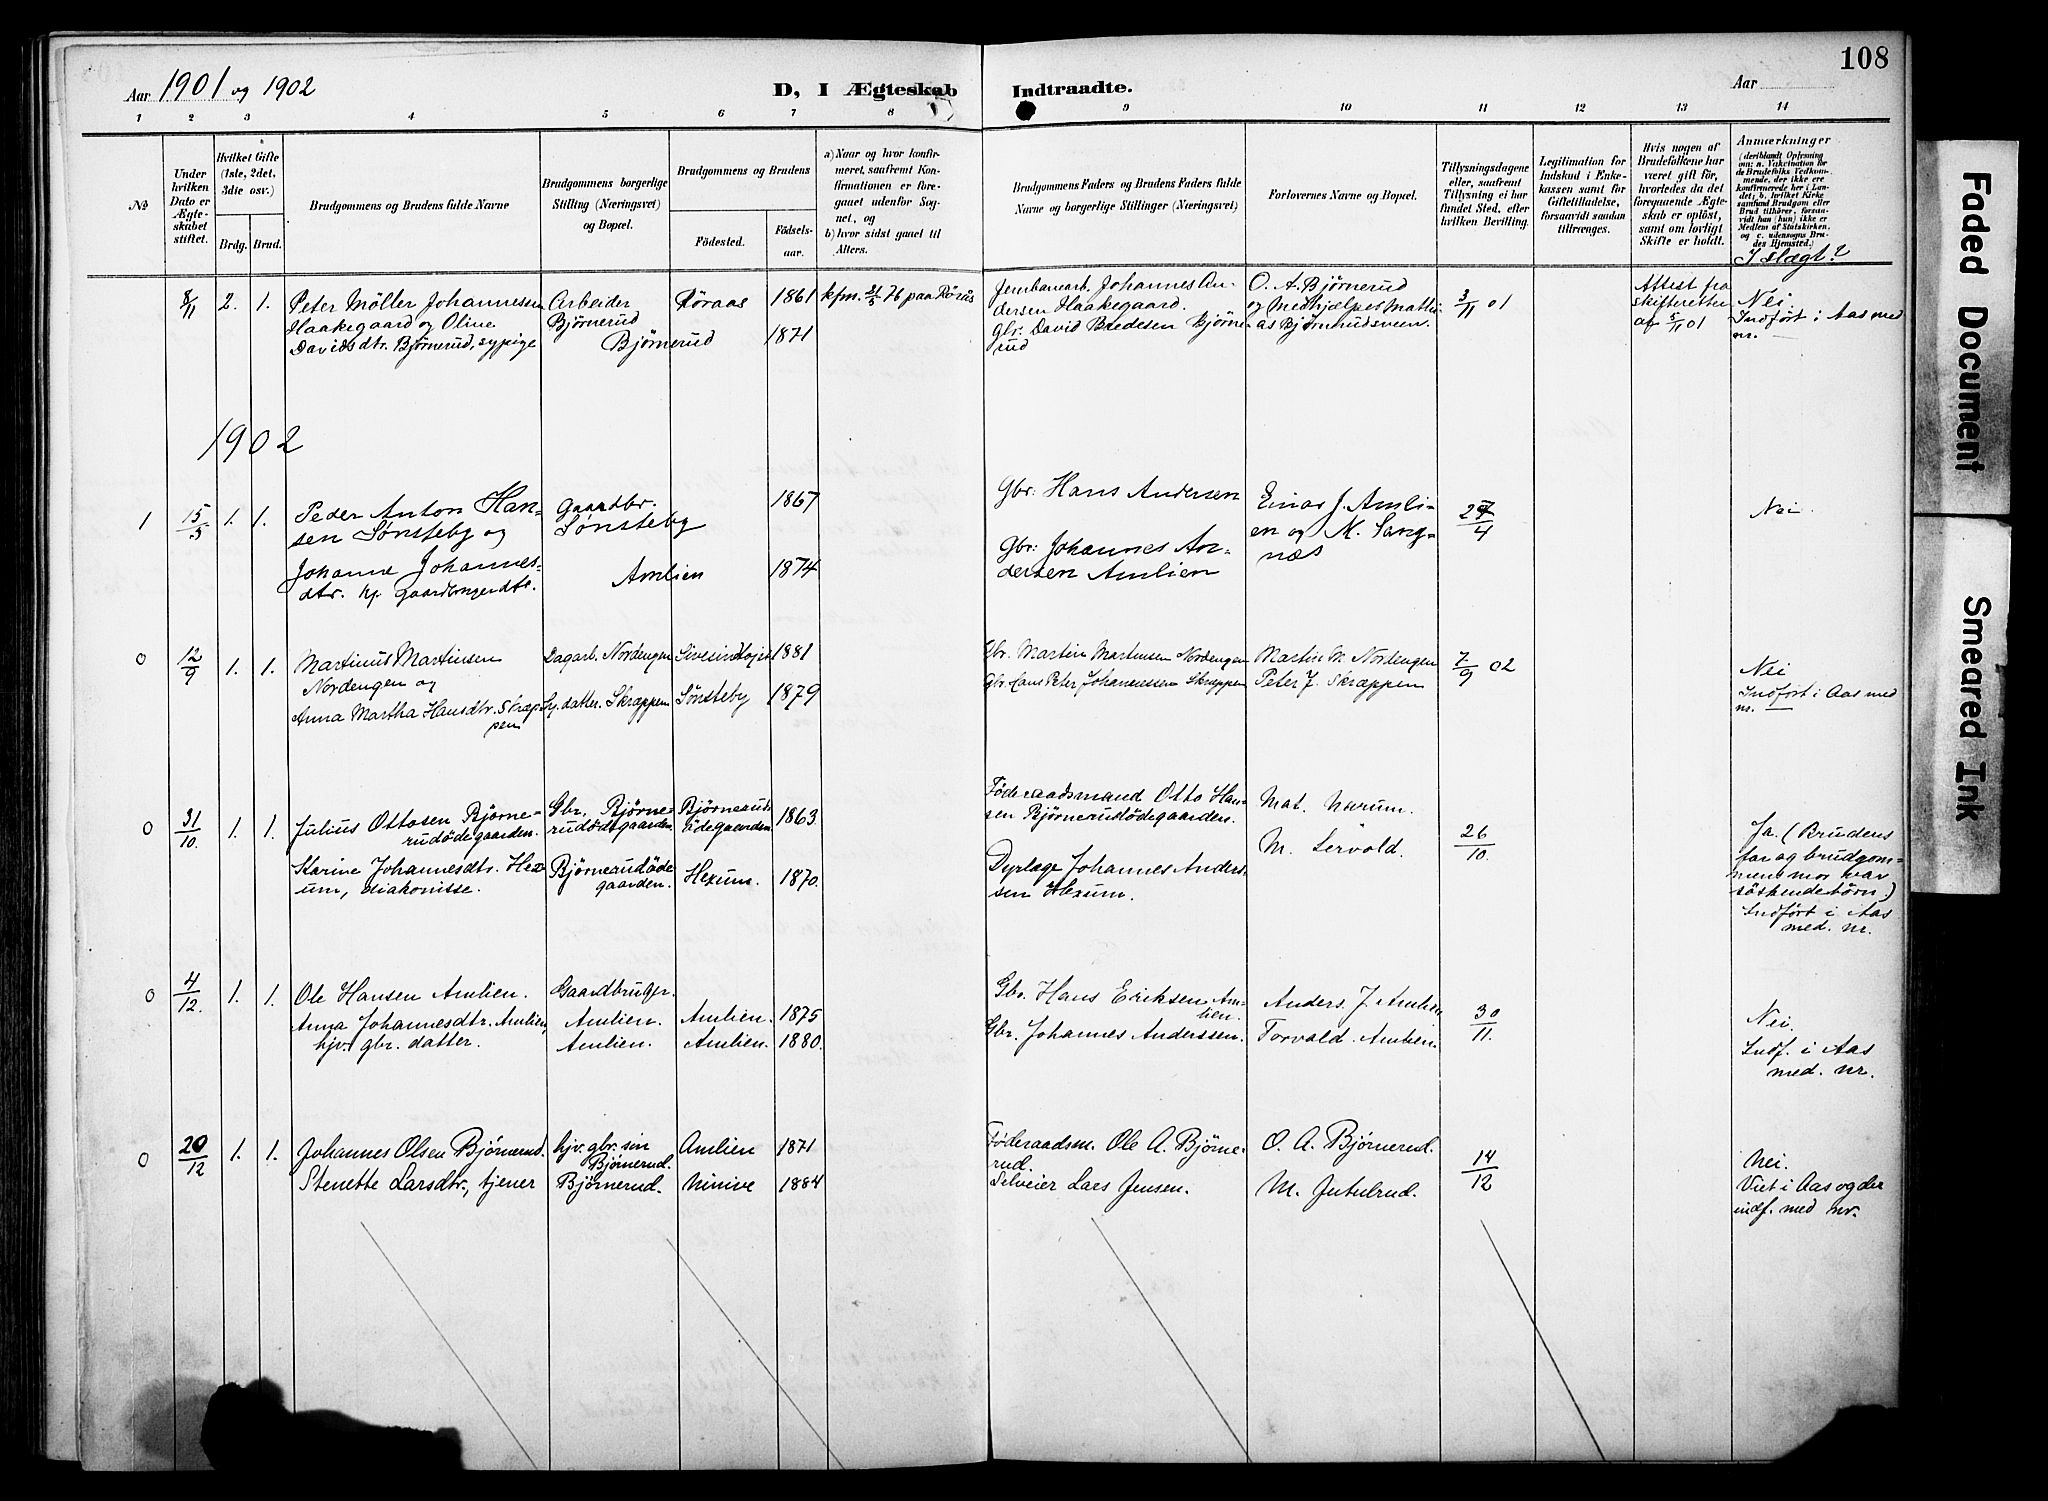 108
Aar 1901 og 1902
D, I Ægteskab Indtraadte.
Aar
1 2 3 4 5 6 7 8 9 10 11 12 13 14
№
Under hvilken Dato er Ægteskabet stiftet.
Hvilket Gifte (1ste, 2det, 3die osv.)
Brdg. Brud.
Brudgommens og Brudens fulde Navne
Brudgommens borgerlige Stilling (Næringsvei) og Bopæl.
Brudgommens og Brudens
Födested.
Födselsaar.
a) Naar og hvor konfirmeret, saafremt Konfirmationen er foregaaet udenfor Sognet, og
b) hvor sidst gaaet til Alters.
Brudgommens Faders og Brudens Faders fulde Navne og borgerlige Stillinger (Næringsvei)
Forlovernes Navne og Bopæl.
Tillysningsdagene eller, saafremt Tillysning ei har fundet Sted, efter hvilken Bevilling.
Legitimation for Indskud i Enkekassen samt for Giftetilladelse, forsaavidt saadan tiltrænges.
Hvis nogen af Brudefolkene har været gift før, hvorledes da det foregaaende Ægteskab er opløst, samt om lovligt Skifte er holdt.
Anmærkninger
(deriblandt Oplysning om: a. Vakcination for de Brudefolks Vedkommende, der ikke ere konfirmerede her i Landet; b. hvilket Kirkesamfund Brudgom eller Brud tilhörer, forsaavidt han (hun) ikke er Medlem af Statskirken, og c. udensogns Brudes Hjemsted.)
I slægt?
8/11 2. 1. Peter Möller Johannesen
Haakegaard og Oline
Davidsdtr. Bjørnerud, sypige
Arbeider
Bjørnerud
Bjørnerud
Röraas
1861
1871
kfm. 21/5 76 paa Rörås
Jernbanearb. Johannes Andersen Haakegaard.
Gbr. David Bredesen Bjørnerud
O. A. Bjørnerud
og Medhjælper Mathias Bjørnerudsveen.
3/11 01
Attest fra
skifteretten
af 5/11 01
Nei.
Indført i Aas med
nr. —
1902
1 15/5 1. 1. Peder Anton Hansen Sønsteby og
Johanne Johannesdtr. hj. gaardbrugerdtr.
Gaardbr.
Sønsteby
Amlien
1867
1874
Gbr: Hans Andersen
Gbr: Johannes Andersen Amlien
Einar J. Amlien og M. Sangnæs
27/4
Nei
0 12/9 1. 1. Martinus Martinsen
Nordengen og
Anna Martha Hansdtr. Skræppen
Dagarb. Nordengen
Sy. datter. Skræppen
Sivesindhøjst
Sønsteby
1881
1879
Gbr. Martin Martinsen Nordengen
Gbr. Hans Peter Johannessen Skræppen
Martin M. Nordengen
Peter J. Skræppen
7/9 02
Nei
Indført i Aas med
nr. —
0 31/10. 1. 1. Julius Ottosen Bjørnerudödegaarden.
Karine Johannesdtr. Hexum, diakonisse.
Gbr. Bjørnerudödegaarden
Bjørnerudödegaarden.
Bjørneruds
ödegaarden
Hexum.
1863.
1870.
Föderaadsmand Otto Hansen Bjørnerudödegaarden.
Dyrlæge Johannes Anderssen Hexum.
Mat. Narum.
M. Servold.
26/10.
Ja. (Brudens
far og brudgommens mor var
söskendebörn.)
Indført i Aas
med. nr.
0 4/12. 1. 1. Ole Hansen Amlien.
Anna Johannesdtr. Amlien,
hjv. gbr. datter.
Gaardbruger.
Amlien.
Amlien.
Amlien.
Amlien.
1875
1880.
Gbr. Hans Eriksen Amlien.
Gbr. Johannes Anderssen.
Anders. J. Amlien
Torvald. Amlien.
30/11.
Nei.
Indf. i Aas
med. nr.
0 20/12 1. 1. Johannes Olsen Bjørnerud.
Stenette Larsdtr., tjener
hjv. gbr. søn
Bjørnerud.
Bjørnerud.
Amlien
Ninive
1871
1884
Föderaadsm. Ole A. Bjørnerud.
Selveier Lars Jensen.
O. A. Bjørnerud.
M. Jutulrud.
14/12
Nei.
Viet i Aas og der
indf. med nr.
Faded Document
Smeared Ink